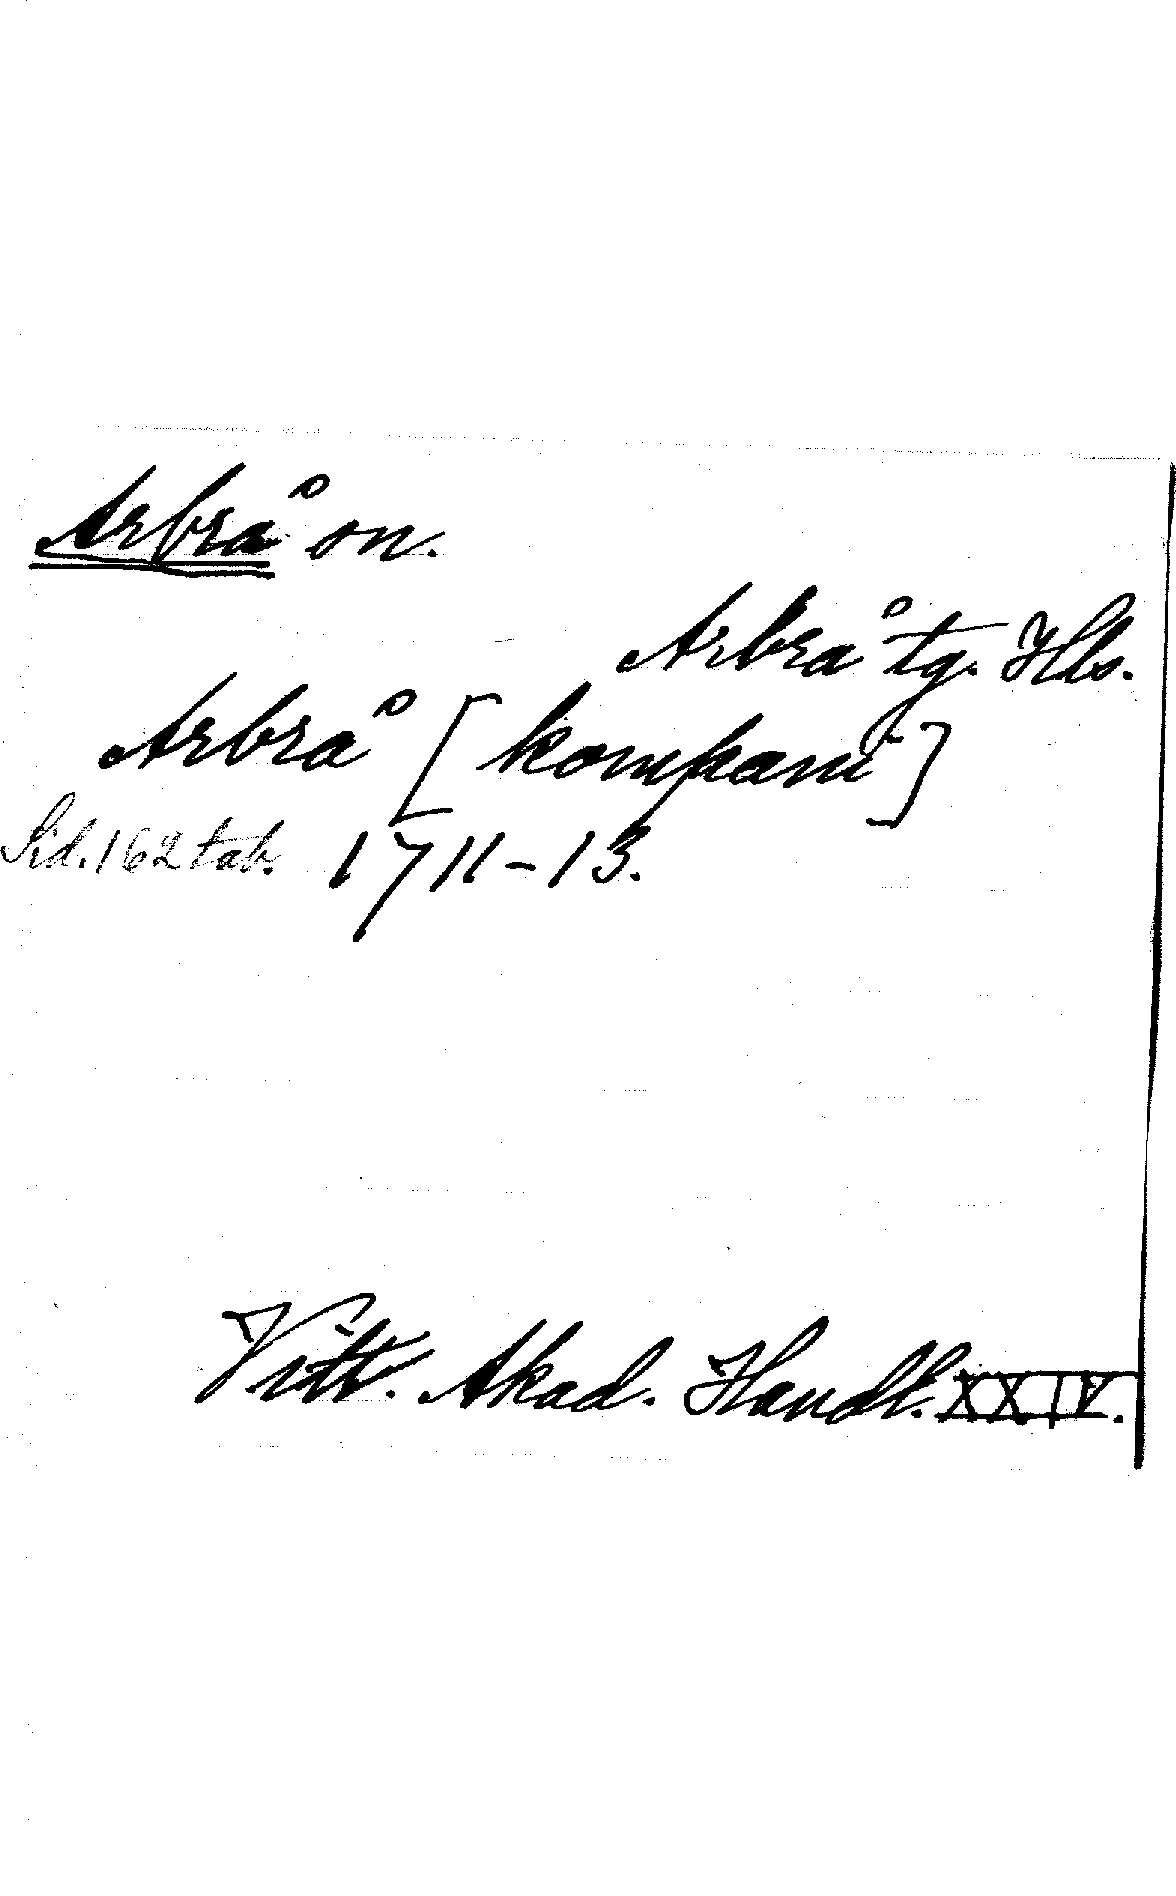 Arbrå on.
Arbrå tg. Hls.
Arbrå [kompani]
Sid. 162 tab. 1711-13.
Vitt. Akad. Handl. XXIV.